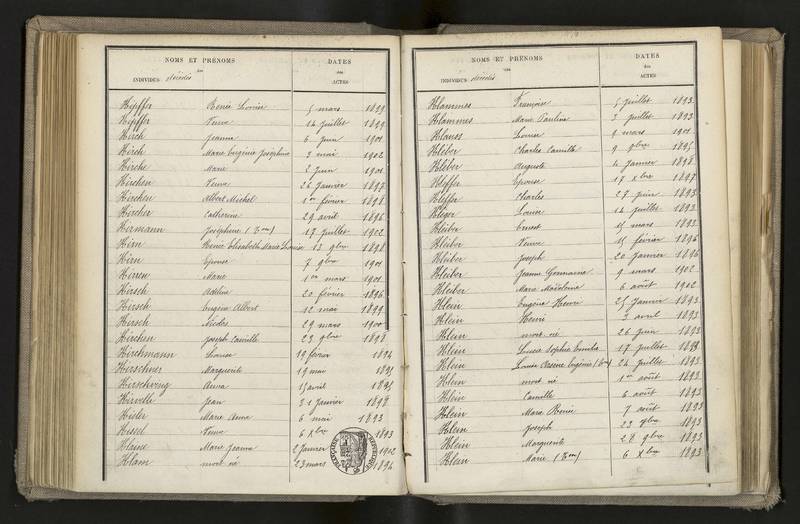 NOMS ET PRÉNOMS
des
INDIVIDUS décédés
DATES
des
ACTES
Kipffer Renée Louise 5 mars 1899
Kipffer Veuve 14 juillet 1899
Kirch Jeanne 6 juin 1901
Kirch Marie Eugénie Joséphine 3 mai 1902
Kirche Marie 2 juin 1901
Kirchen Veuve 26 janvier 1897
Kirchen Albert Michel 1er février 1898
Kircher Catherine 29 avril 1896
Kirmann Joséphine 17 juillet 1902
Kirn Renée Elisabeth Marie Louise 13 9bre 1898
Kirn Epouse 7 9bre 1901
Kirsch Marie 1er mars 1901
Kirsch Adeline 20 février 1896
Kirsch Eugène Albert 12 mai 1899
Kirsch Nicolas 29 mars 1900
Kirchen Joseph Camille 29 9bre 1898
Kirchmann Louise 19 février 1894
Kirschner Marguerite 19 mai 1895
Kirschving Anna 15 avril 1895
Kirvelle Jean 31 janvier 1898
Kisler Marie Anna 6 mai 1893
Kissel Veuve 6 Xbre 1893
Klaine Marie Jeanne 2 janvier 1902
Klam mort né 23 mars 1894
NOMS ET PRÉNOMS
des
INDIVIDUS décédés
DATES
des
ACTES
Klammes Françoise 5 juillet 1893
Klammes Marie Pauline 3 juillet 1893
Klauss Louise 9 mars 1901
Kléber Charles Camille 9 9bre 1895
Kléber Auguste 4 janvier 1898
Kleffer Epouse 17 Xbre 1897
Kleffer Charles 27 juin 1893
Kleger Louise 14 juillet 1893
Kleiber Ernest 15 mars 1893
Kleiber Veuve 15 février 1896
Kleiber Joseph 20 janvier 1896
Kleiber Jeanne Germaine 9 mars 1902
Kleiber Marie Madeleine 6 août 1902
Klein Eugène Henri 25 janvier 1893
Klein Henri 2 avril 1893
Klein mort né 26 juin 1893
Klein Louise Sophie 17 juillet 1893
Klein Louise Arsène Eugénie 24 juillet 1893
Klein mort né 1er août 1893
Klein Camille 6 août 1893
Klein Marie Reine 7 août 1893
Klein Joseph 23 9bre 1893
Klein Marguerite 28 9bre 1893
Klein Marie 6 Xbre 1893